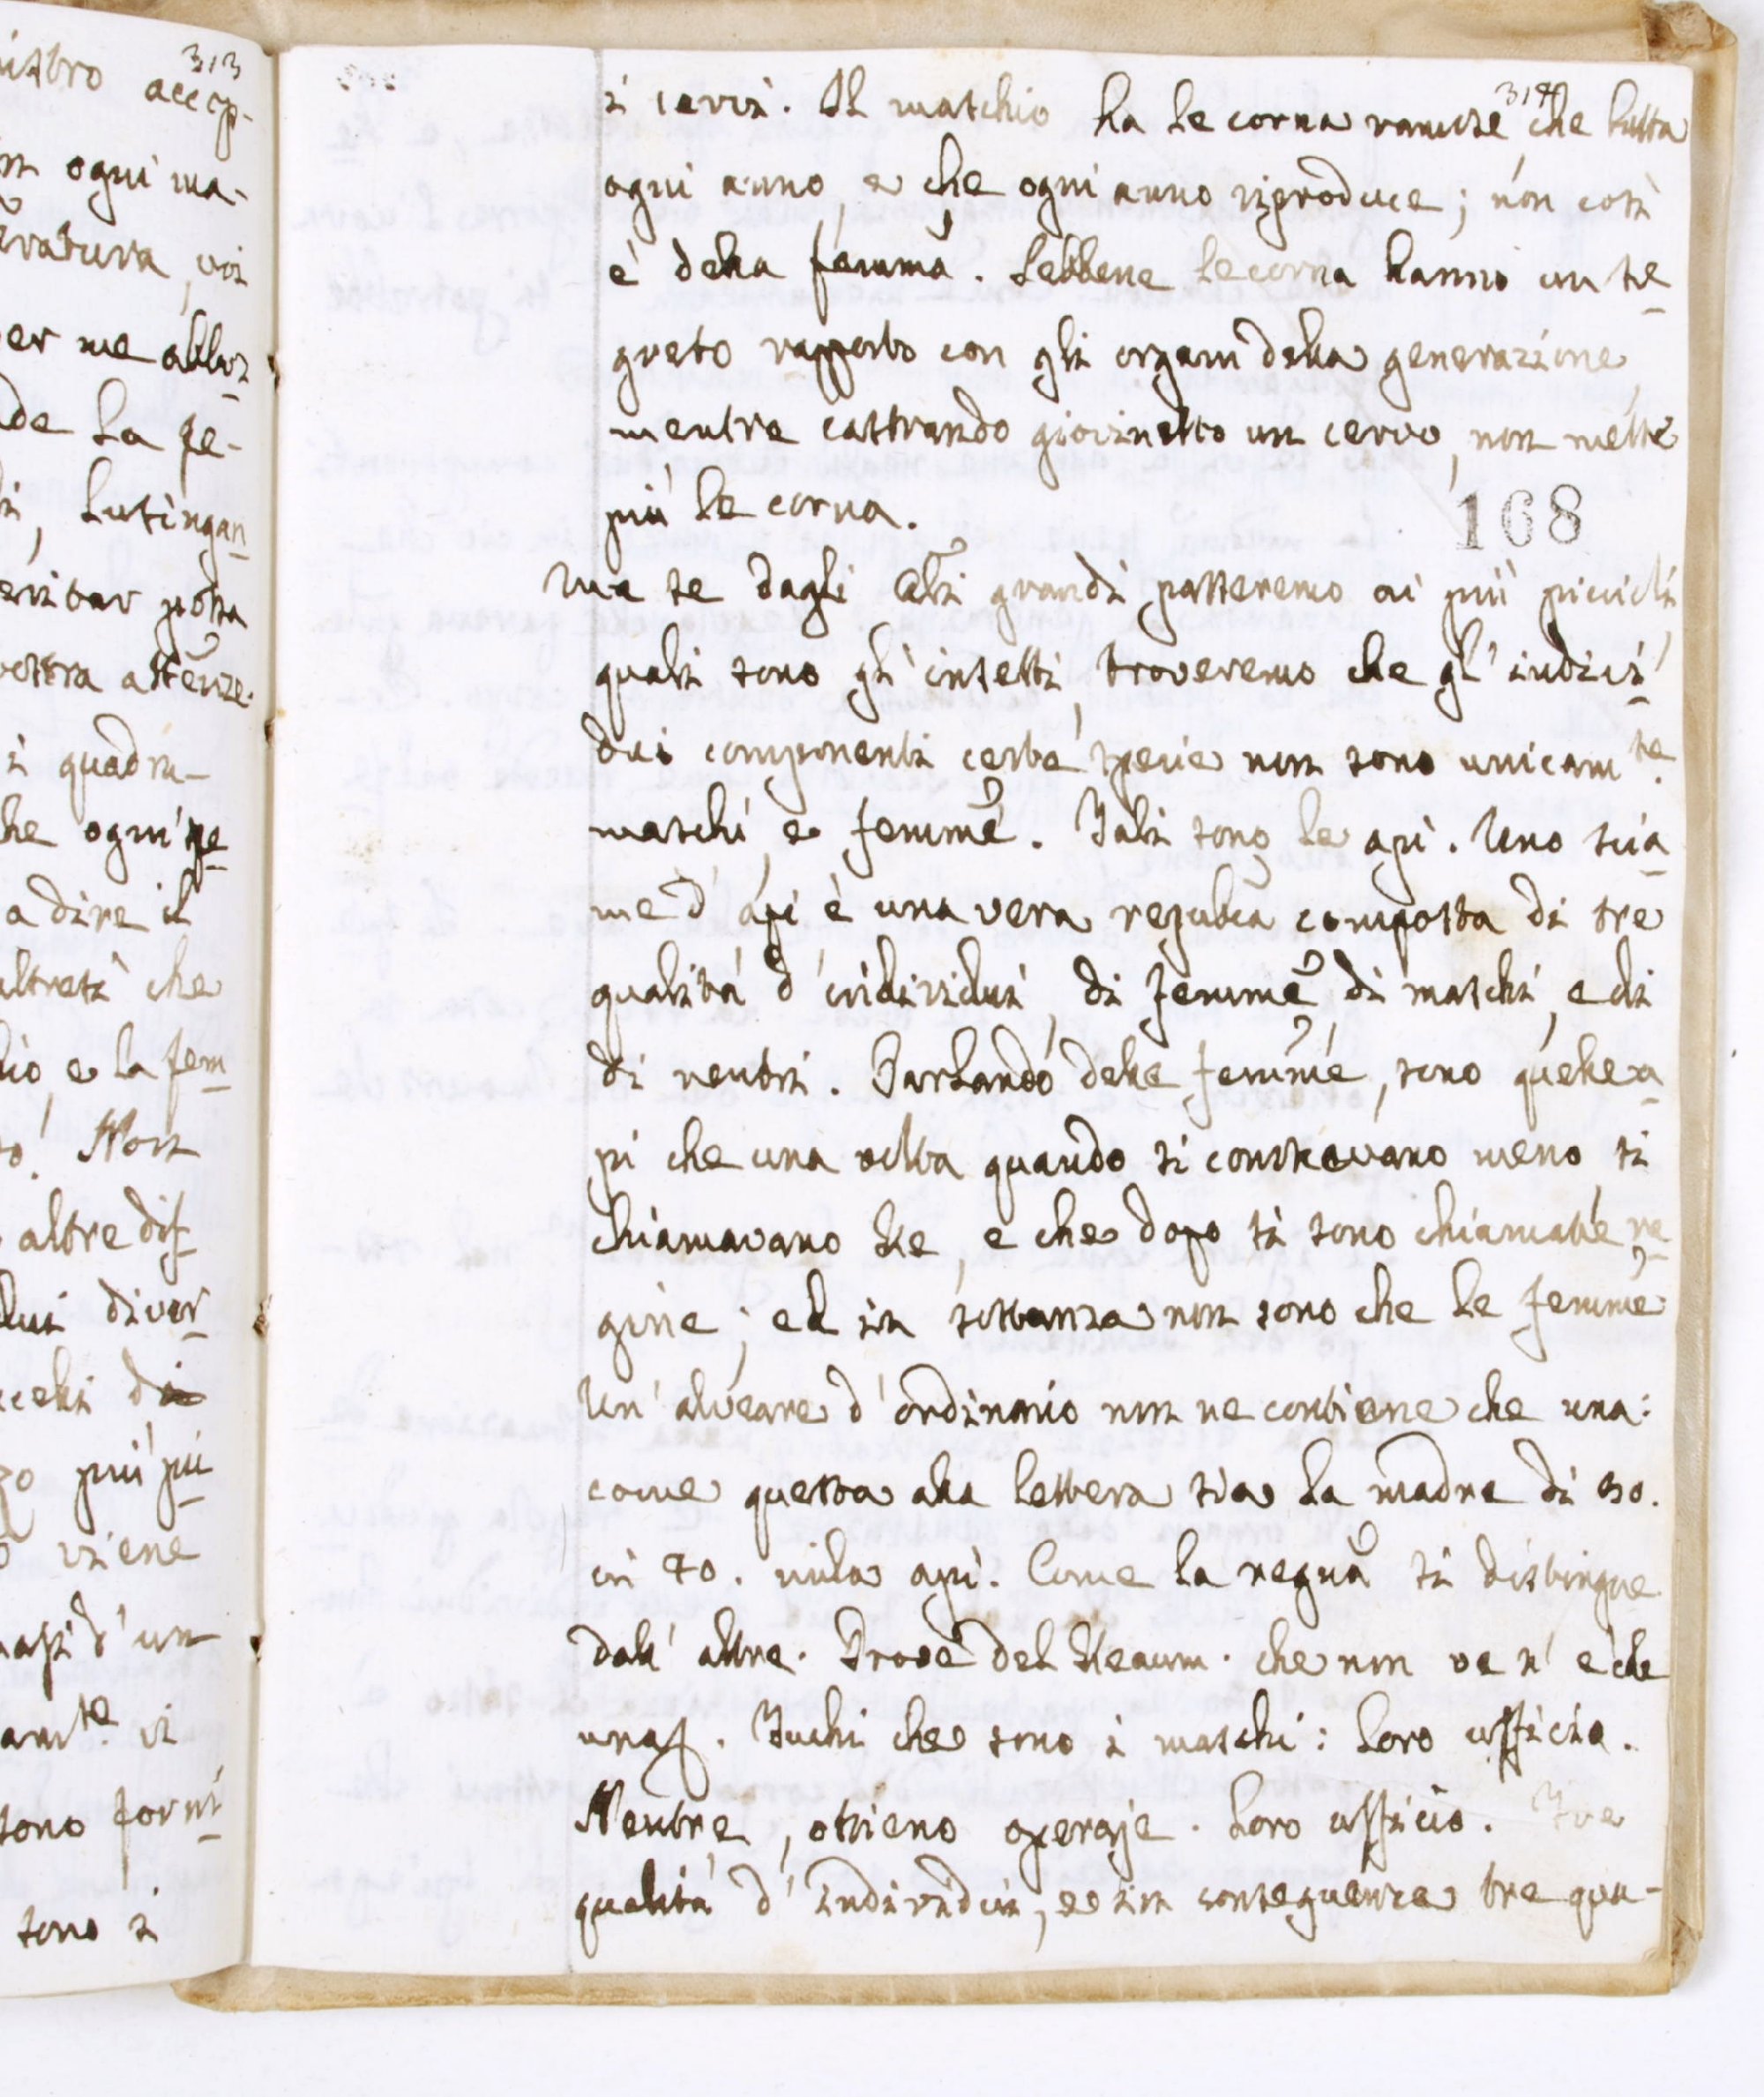 313
accep-
ogni ma-
vi
er me abbas
de la ge-
lusingan
possa
vostra attenze.
i quadru-
he ogni spe
a dire il
altresì che
io, e la fem
Non
altre dif
dui diver
più pic
viene
d'un
amte vi
sono forni
sono i
314
i cervi. Il maschio ha le corna ramose che butta
ogni anno, e che ogni anno riproduce; non così
è della femina. Sebbene le corna hanno un se
greto rapporto con gli organi della generazione,
mentre castrando giovinetto un cervo, non mette
più le corna.
168
Ma se dagli Ali grandi passeremo ai più piccioli,
quali sono gl'insetti, troveremo che gl'indivi
dui componenti certe spezie non sono unicamte
maschi, e femine. Tali sono le api. Uno scia
me d'api è una vera repubca composta di tre
qualità d'individui di femine, di maschi, e di
di neutri. Parlando delle femine, sono quelle a
pi che una volta quando si conoscevano meno si
chiamavano Re, e che dopo si sono chiamate re
gine; ed in sostanza non sono che le femine
Un'alveare d'ordinario non ne contiene che una:
come questa alla lettera sia la madre di 30.
in 40. mila api. Come la regina si distingue
dall'altre. Prove del Reaum. che non ve n'è che
una. Fuchi che sono i maschi: loroufficia.
Neutre, ossieno operaje. Loro ufficio. Tre
qualità d'individui, ed in conseguenza tre qua-